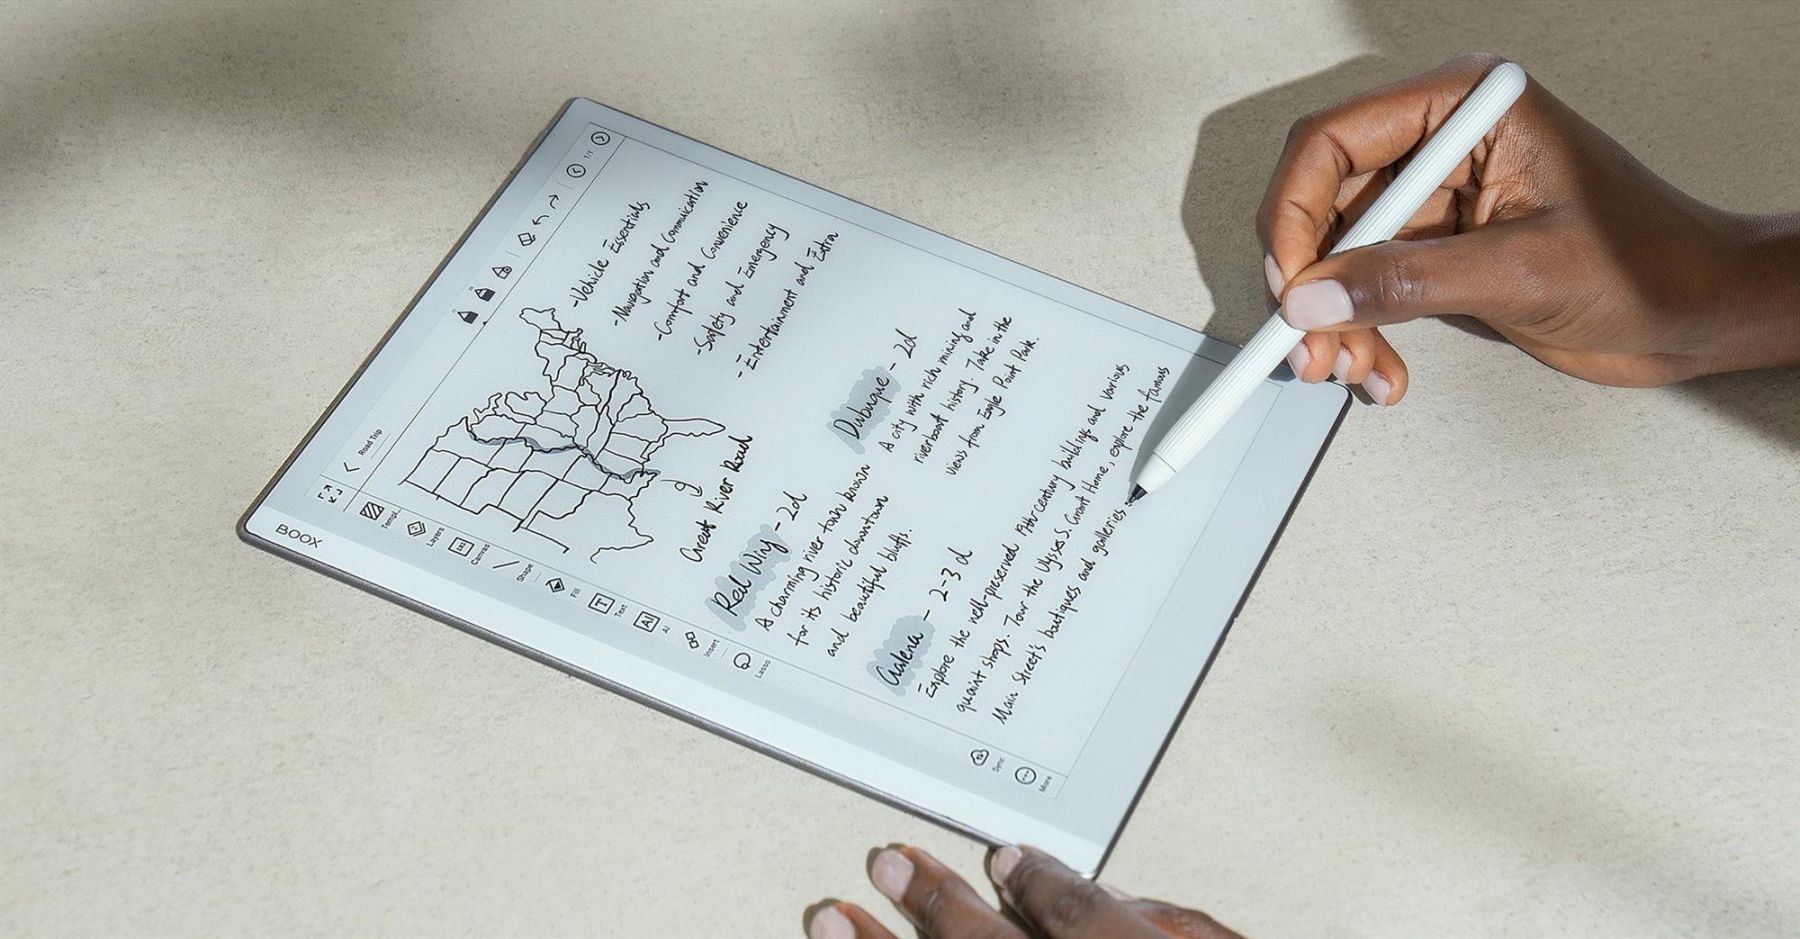 BOOX
Road Trip
1/1
Templ...
Layers
Canvas
Shape
Fill
Text
AI
AI
Insert
Lasso
Sync
More
-Vehicle Essentials
-Navigation and Commuication
-Comfort and Convenience
-Safety and Emergency
-Entertainment and Extra
Great River Road
Red Wing - 2d
A charming river town known
for its historic downtown
and beautiful bluffs.
Dubuque - 2d
A city with rich mining and
riverboat history. Take in the
views from Eagle Point Park.
Galena - 2-3 d
Explore the well-preserved 19th century buildings and various
quaint shops. Tour the Ulysses S. Grant Home, explore the famous
Main Street's boutiques and galleries.